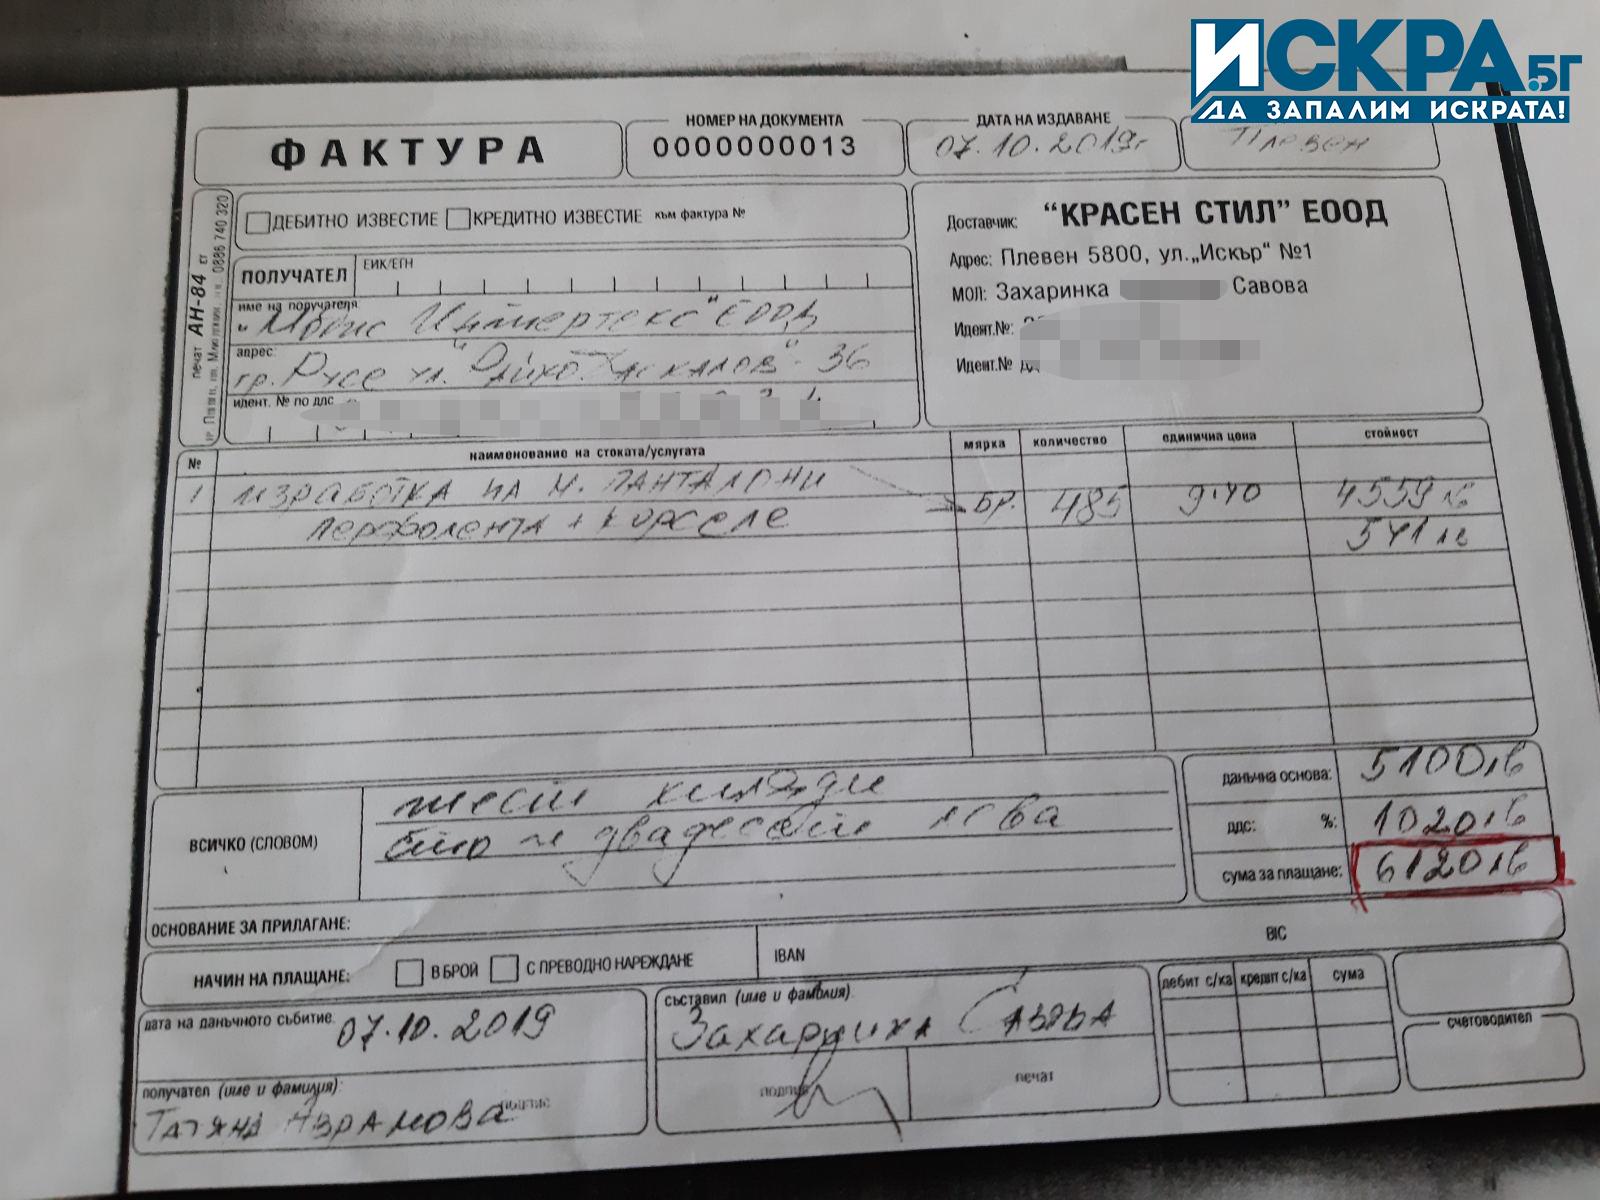 ИСКРА.БГ
ДА ЗАПАЛИМ ИСКРАТА!
ФАКТУРА
НОМЕР НА ДОКУМЕНТА
0000000013
ДАТА НА ИЗДАВАНЕ
07.10.2019г
Плевен
ДЕБИТНО ИЗВЕСТИЕ КРЕДИТНО ИЗВЕСТИЕ към фактура №
Доставчик: "КРАСЕН СТИЛ" ЕООД
Адрес: Плевен 5800, ул.„Искър“ №1
МОЛ: Захаринка Савова
Идент.№:
Идент.№
печат АН-84 ст
0886 740 320
ПОЛУЧАТЕЛ
ЕИК/ЕГН
име на получателя:
"Модис Интертекс" ЕООД
адрес:
гр. Русе ул. "Райко Даскалов" - 36
идент. № по ддс
№ наименование на стоката/услугата мярка количество единична цена стойност
1 изработка на м. панталони бр. 485 9.40 4559 лв
перфолента + корселе 541 лв
ВСИЧКО (СЛОВОМ)
шест хиляди
сто и двадесет лева
данъчна основа: 5100 лв
ддс: %: 1020 лв
сума за плащане: 6120 лв
ОСНОВАНИЕ ЗА ПРИЛАГАНЕ:
НАЧИН НА ПЛАЩАНЕ: В БРОЙ С ПРЕВОДНО НАРЕЖДАНЕ
IBAN
BIC
дата на данъчното събитие:
07.10.2019
съставил (име и фамилия):
Захаринка Савова
подпис
печат
получател (име и фамилия):
подпис
Татяна Аврамова
дебит с/ка кредит с/ка сума
счетоводител